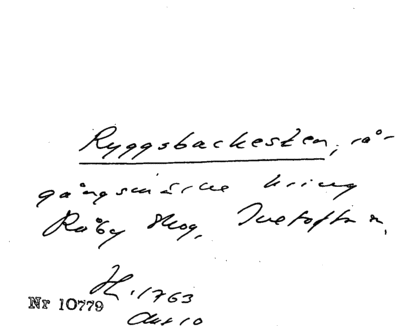 Ryggsbackesten, rå-
gångsmärke kring
Råby skog, Tvetofta s.
H. 1763
Akt 10
Nr 10779